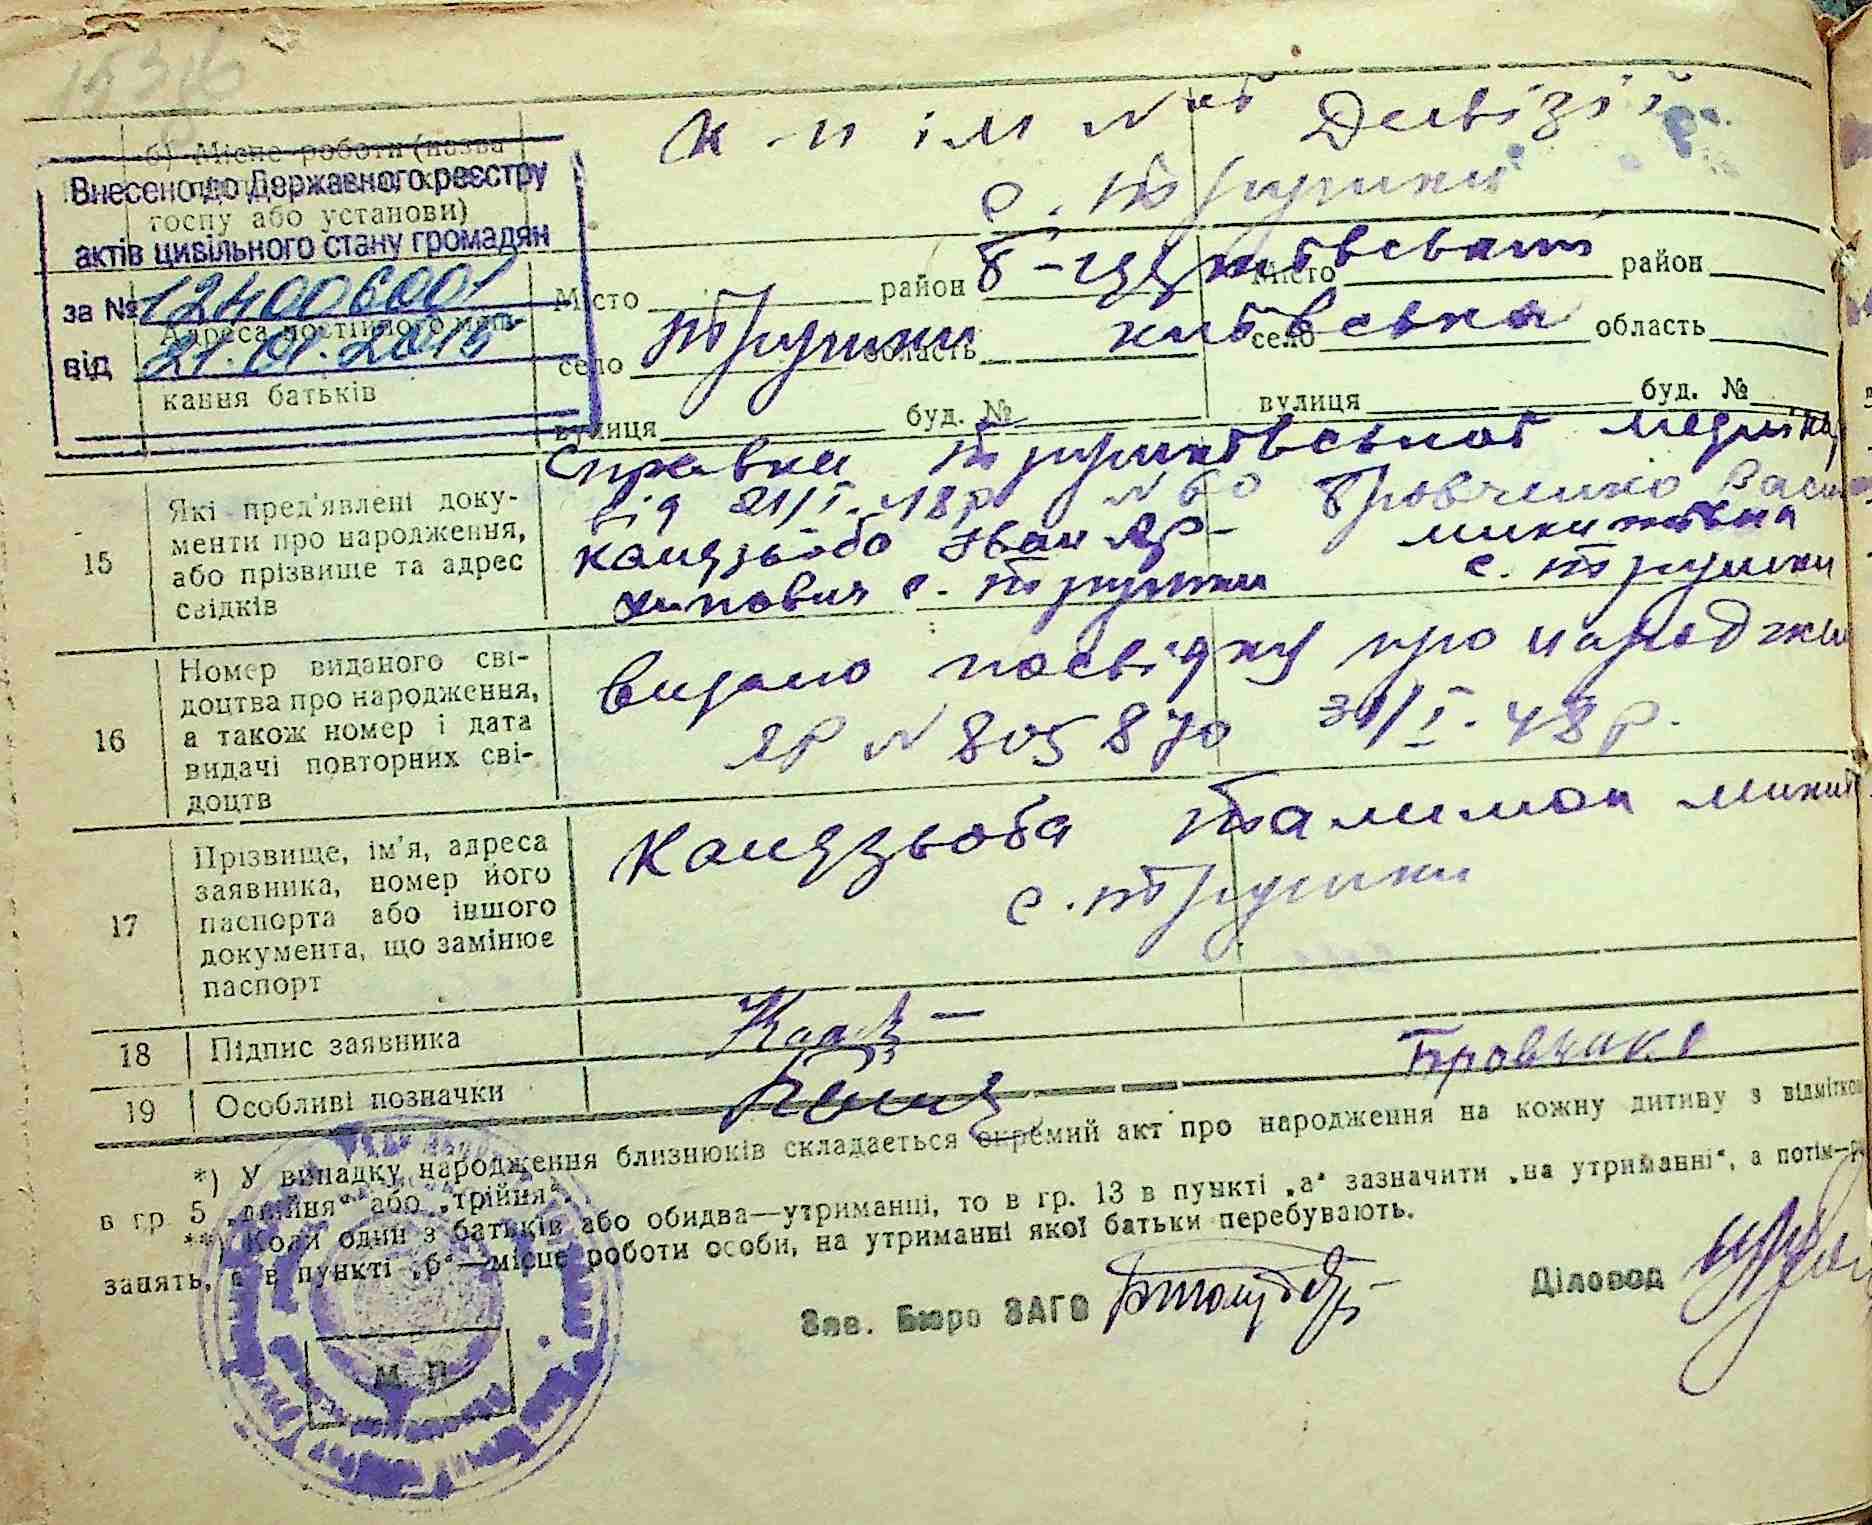 К-п ім № Девізії
с. Трушки
б) Місце роботи (назва
госпу або установи)
Внесено до Державного реєстру
актів цивільного стану громадян
за № 124006001
від 21.01.2015
Адреса постійного меш-
кання батьків
Місто район Б-Церківський Місто район
село Трушки область київська село область
вулиця буд. № вулиця буд. №
15 Які пред'явлені доку-
менти про народження,
або прізвище та адрес
свідків
Справка Трушківської
від 21/I.48р №60 Бровченко
Канзьоба Іван Ар- микитівна
хипович с. Трушки с. Трушки
16 Номер виданого сві-
доцтва про народження,
а також номер і дата
видачі повторних сві-
доцтв
Видано посвідку про народжен
ЯР №805870 31/I.48р.
17 Прізвище, ім'я, адреса
заявника, номер його
паспорта або іншого
документа, що замінює
паспорт
Канзьоба Талимон Микит
с. Трушки
18 Підпис заявника
19 Особливі позначки
Бровченко
*) У випадку народження близнюків складається окремий акт про народження на кожну дитину з відміткою
в гр. 5 „двійня“ або „трійня“.
**) Коли один з батьків або обидва—утриманці, то в гр. 13 в пункті „а“ зазначити „на утриманні“, а потім—
занять, а в пункті „б“—місце роботи особи, на утриманні якої батьки перебувають.
Зав. Бюро ЗАГС Діловод
М. П.